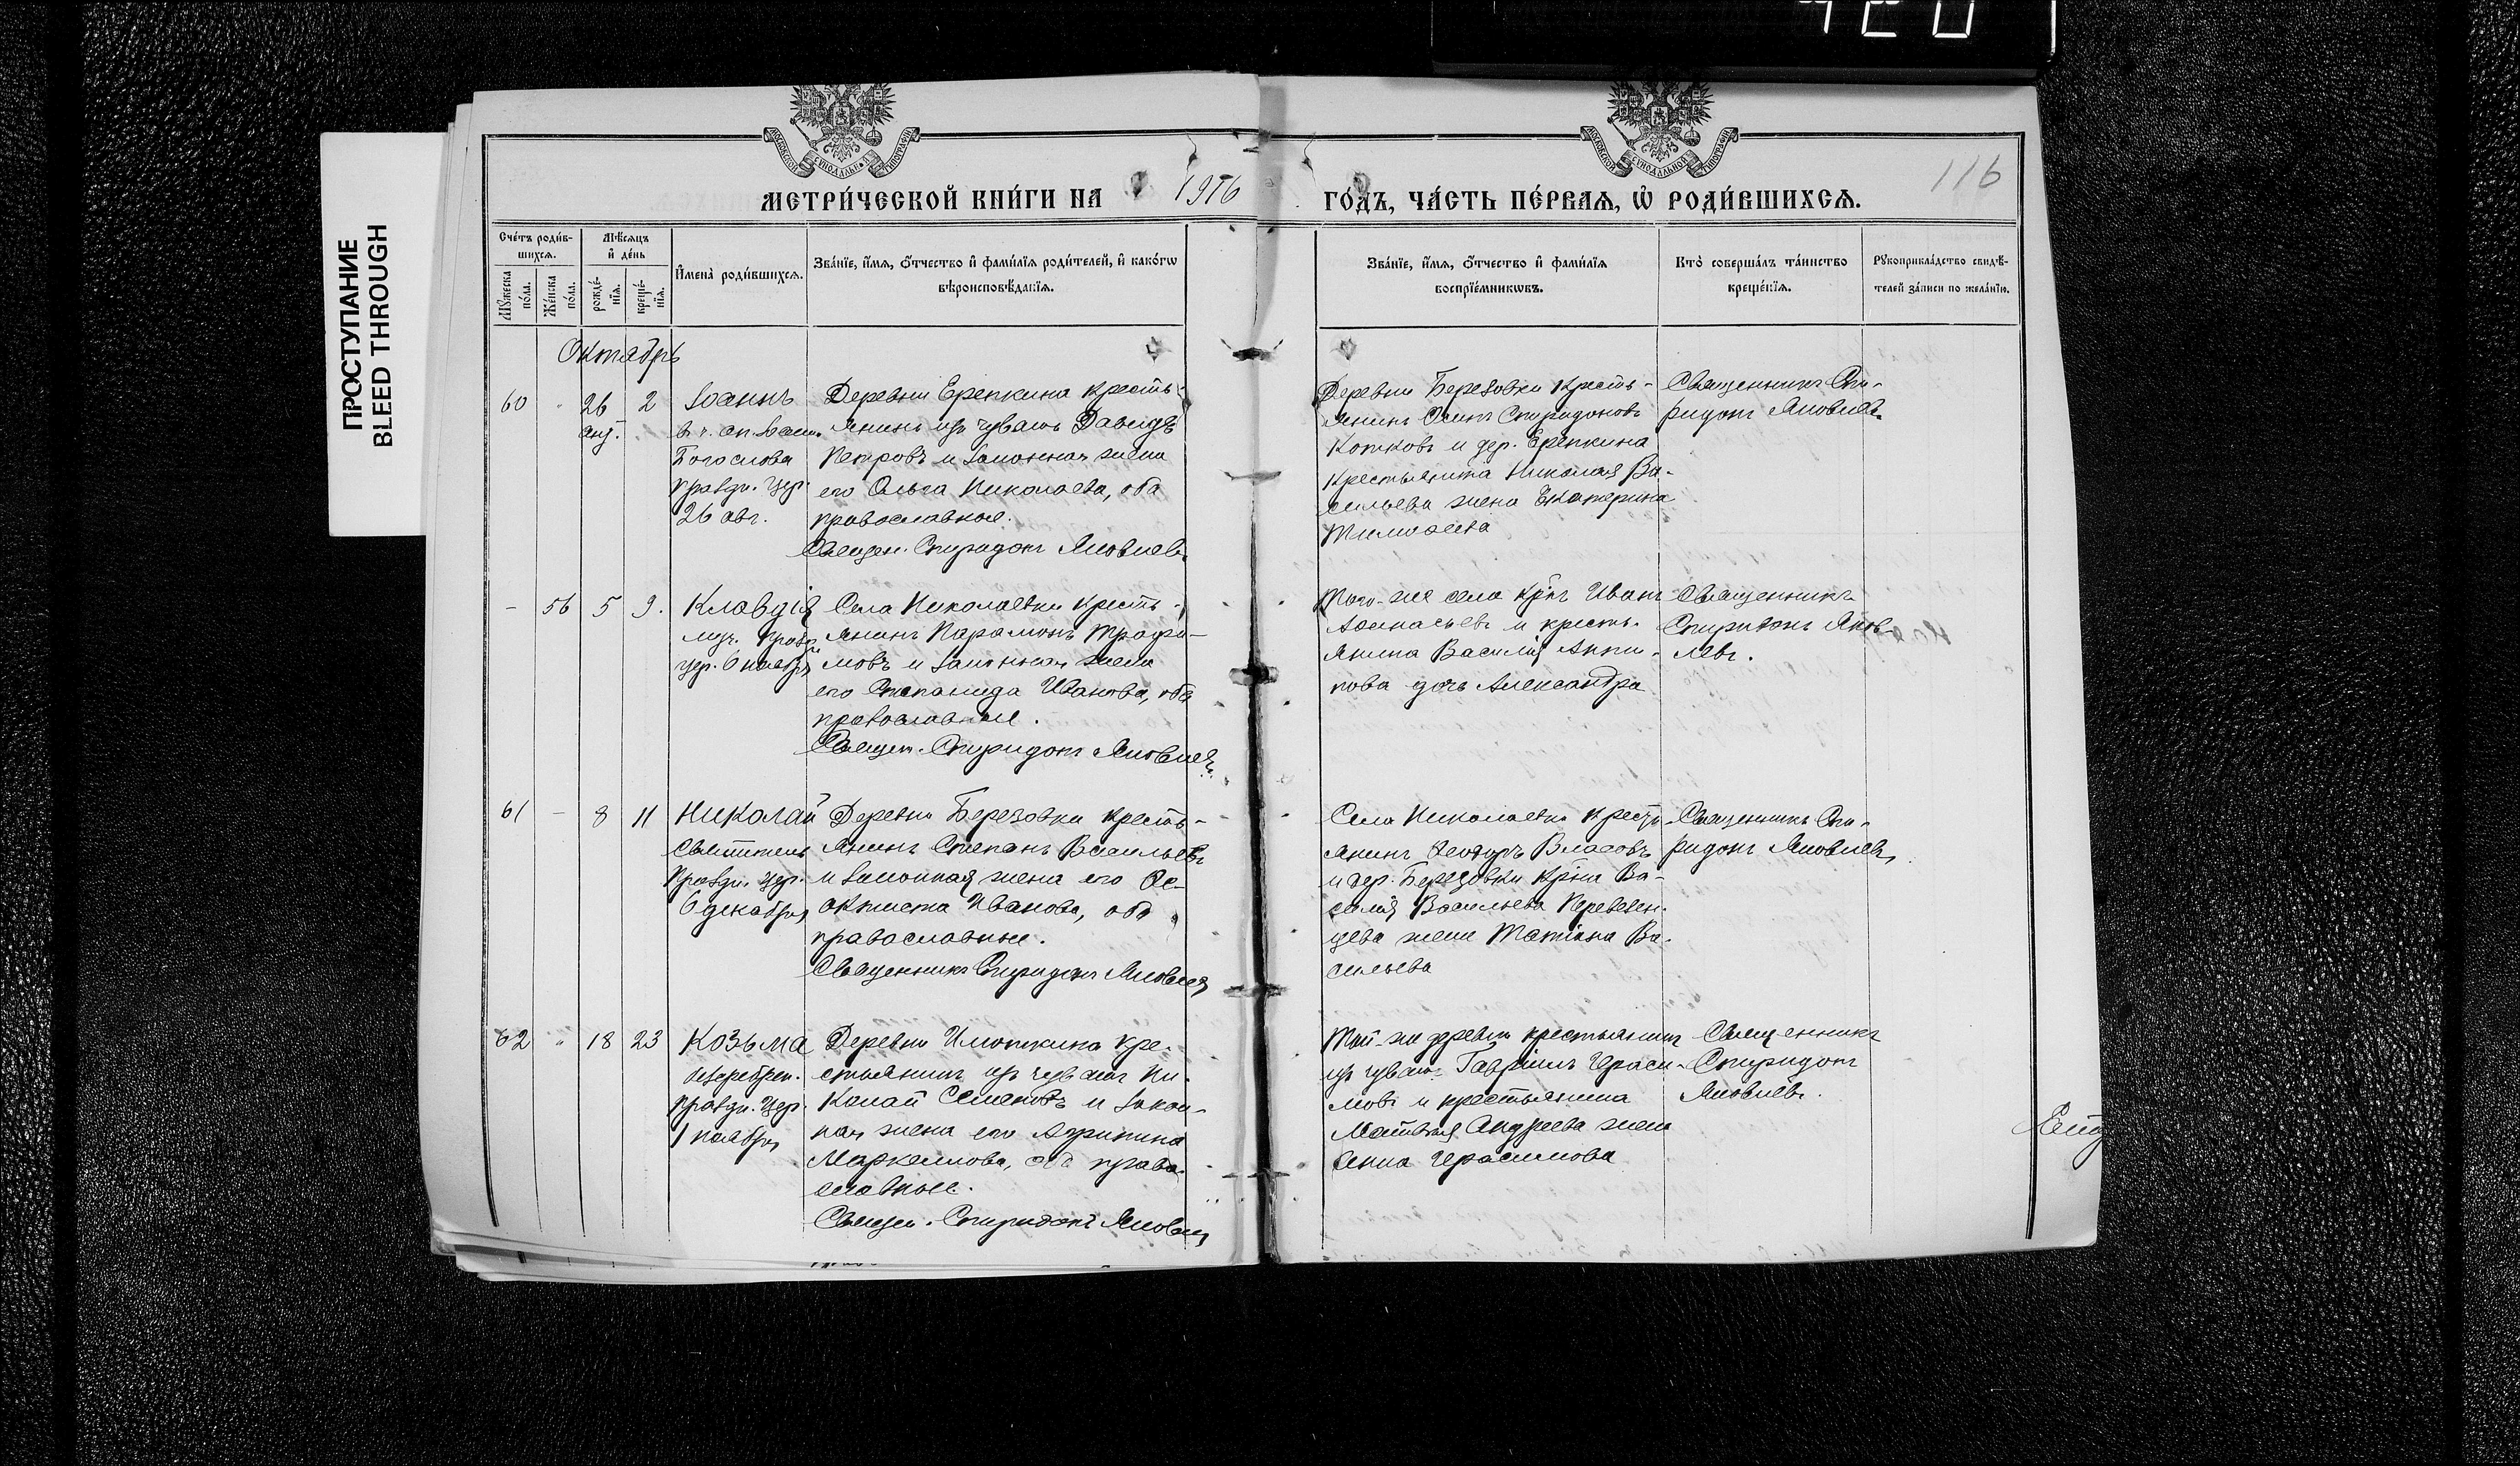 ПРОСТУПАНИЕ
BLEED THROUGH
116
МЕТРИ́ЧЕСКОЙ КНИ́ГИ НА 1916 ГО́ДЪ, ЧА́СТЬ ПЕ́РВАѦ, Ѡ҆ РОДИ́ВШИХСѦ.
Сче́тъ роди́в-
шихсѧ.
Мꙋ́жеска по́ла.
Же́нска по́ла.
Мѣ́сѧцъ
и҆ де́нь
рожде́-
нїѧ.
креще́-
нїѧ.
И҆мена̀ роди́вшихсѧ.
Зва́нїе, и҆́мѧ, ѻ҆́тчество и҆ фами́лїѧ роди́телей, и҆ како́гѡ
вѣроисповѣ́данїѧ.
Зва́нїе, и҆́мѧ, ѻ҆́тчество и҆ фами́лїѧ
воспрїе́мникѡвъ.
Кто̀ соверша́лъ та́инство
креще́нїѧ.
Рꙋкоприкла́дство свидѣ́-
телей за́писи по жела́нїю.
Октябрь
60 " 26 2
авг.
Іоаннъ
Богослова
праздн. цер.
26 авг.
Деревни Ерепкина кресть-
янинъ изъ чувашъ Давидъ
Петровъ и законная жена
его Ольга Николаева, оба
православные.
Священ. Спиридонъ Яковлевъ
Деревни Березовки кресть-
янинъ Спиридоновъ
Котковъ и дер. Ерепкина
крестьянина Николая Ва-
сильева жена Екатерина
Тимоѳеева
Священникъ Спи-
ридонъ Яковлевъ
- 56 5 9.
Клавдія
муч. празд.
цер. 6 ноября
Села Николаевки кресть-
янинъ Парамонъ Трофи-
мовъ и законная жена
его Степанида Иванова, оба
православные.
Священ. Спиридонъ Яковлевъ.
Того-же села Иванъ
Аѳанасьевъ и кресть-
янина Василія Анти-
пова дочь Александра
Священникъ
Спиридонъ Яков-
левъ.
61 - 8 11
Николай
Святитель
праздн. цер.
6 декабря
Деревни Березовки кресть-
янинъ Степанъ Васильевъ
и законная жена его Ѳе-
октиста Иванова, оба
православные.
Священникъ Спиридонъ Яковлевъ
Села Николаевки кресть-
янинъ Ѳеодоръ Власовъ
и дер. Березовки кр-на Ва-
силія Васильева Переведен-
цева жена Татіана Ва-
сильева
Священникъ Спи-
ридонъ Яковлевъ
62 " 18 23
Козьма
безсребрен.
праздн. цер.
1 ноября
Деревни кре-
стьянинъ изъ чувашъ Ни-
колай Семеновъ и закон-
ная жена его Агрипина
Маркеллова, оба право-
славные.
Священ. Спиридонъ Яковлевъ
Той-же деревни крестьянинъ
изъ чувашъ Гавріилъ Гераси-
мовъ и крестьянина
Матвѣя Андреева жена
Анна Герасимова
Священникъ
Спиридонъ
Яковлевъ.